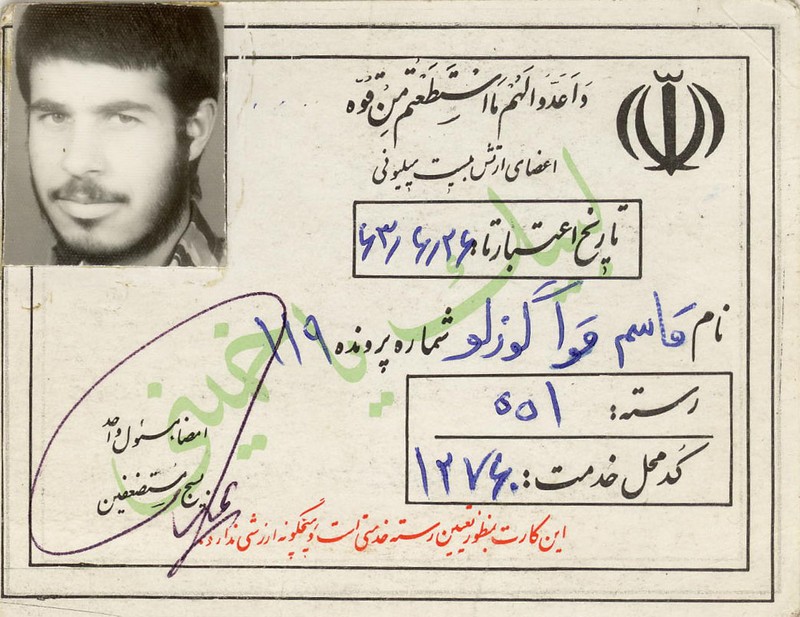 وَاَعَدّوا لَهُم مَا اسْتَطَعْتُم مِنْ قُوّه
اعضای ارتش بیست میلیونی
تاریخ اعتبار تا: ۶۳/۶/۲۶
نام قاسم قراگوزلو شماره پرونده ۱۱۹
رسته: ۵۵۱
کُد محل خدمت: ۱۲۷۶۰
لبیک یا خمینی
امضاء مسئول واحد
بسیج مستضعفین
این کارت بمنظور تعیین رسته خدمتی است و هیچگونه ارزشی ندارد.